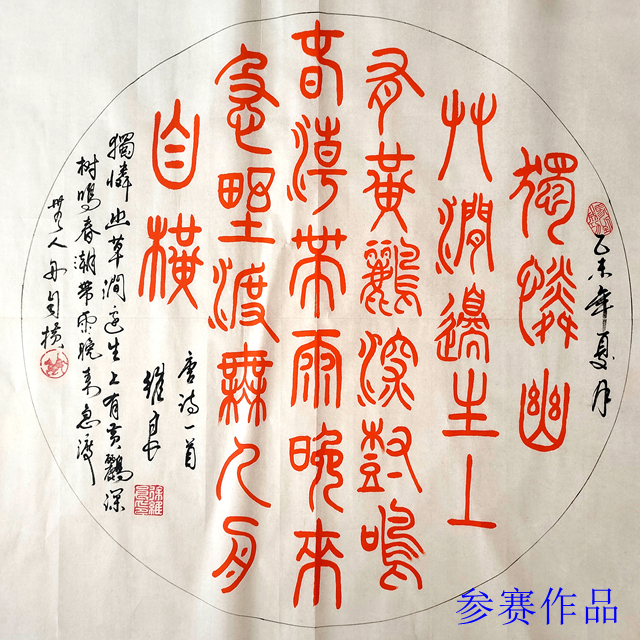 乙未年夏月
獨憐幽
艸澗邊生上
有黃鸝深樹鳴
春潮帶雨晚來
急野渡無人舟
自橫
唐诗一首
維良
獨憐幽草澗边生上有黄鸝深
树鳴春潮带雨晚来急渡
無人舟自横
参赛作品